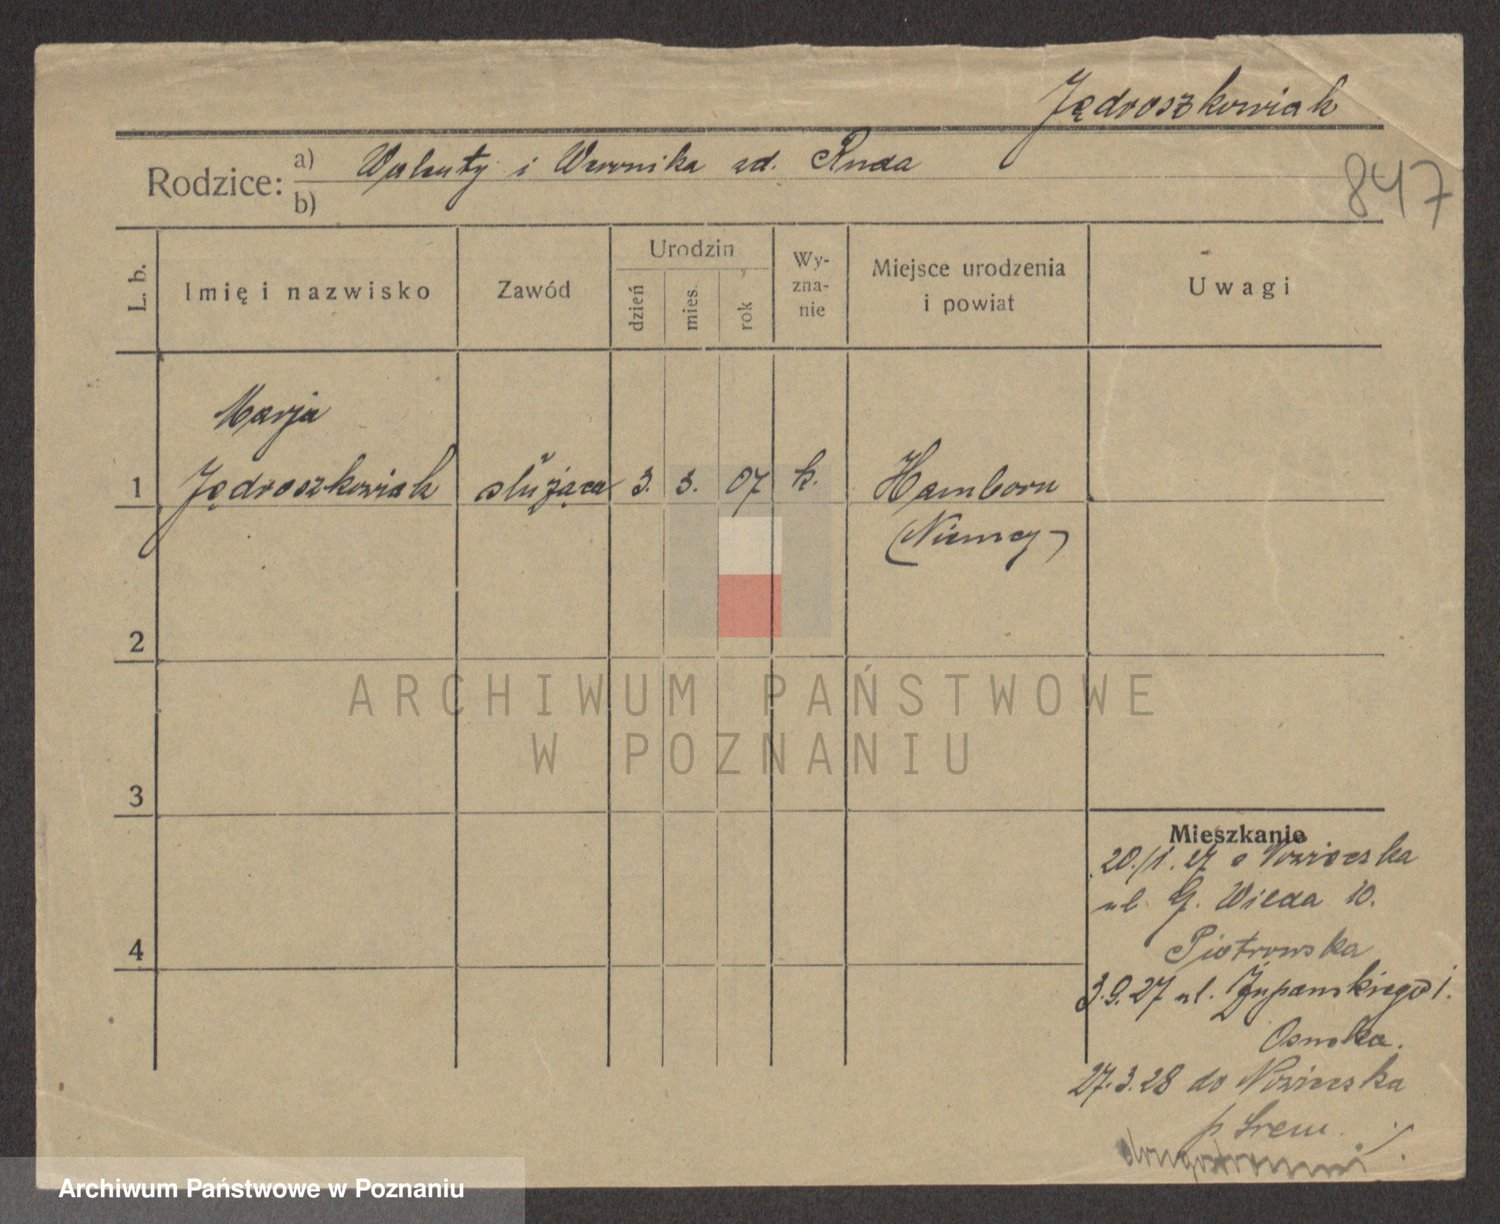 Jędroszkowiak
847
Rodzice: a) Walenty i Weronika zd. Ruda
b)
L. b.
Imię i nazwisko
Zawód
Urodzin
dzień
mies.
rok
Wy-
zna-
nie
Miejsce urodzenia
i powiat
Uwagi
Marja
1 Jędroszkowiak służąca 3. 3. 07 k. Hamborn
(Niemcy)
2
ARCHIWUM PAŃSTWOWE
W POZNANIU
3
Mieszkanie
20./1. 27
ul. G. Wilda 10.
4
Piotrowska
3.9.27 ul. Żupańskiego 1.
27.3.28 do
p. Śrem
Archiwum Państwowe w Poznaniu